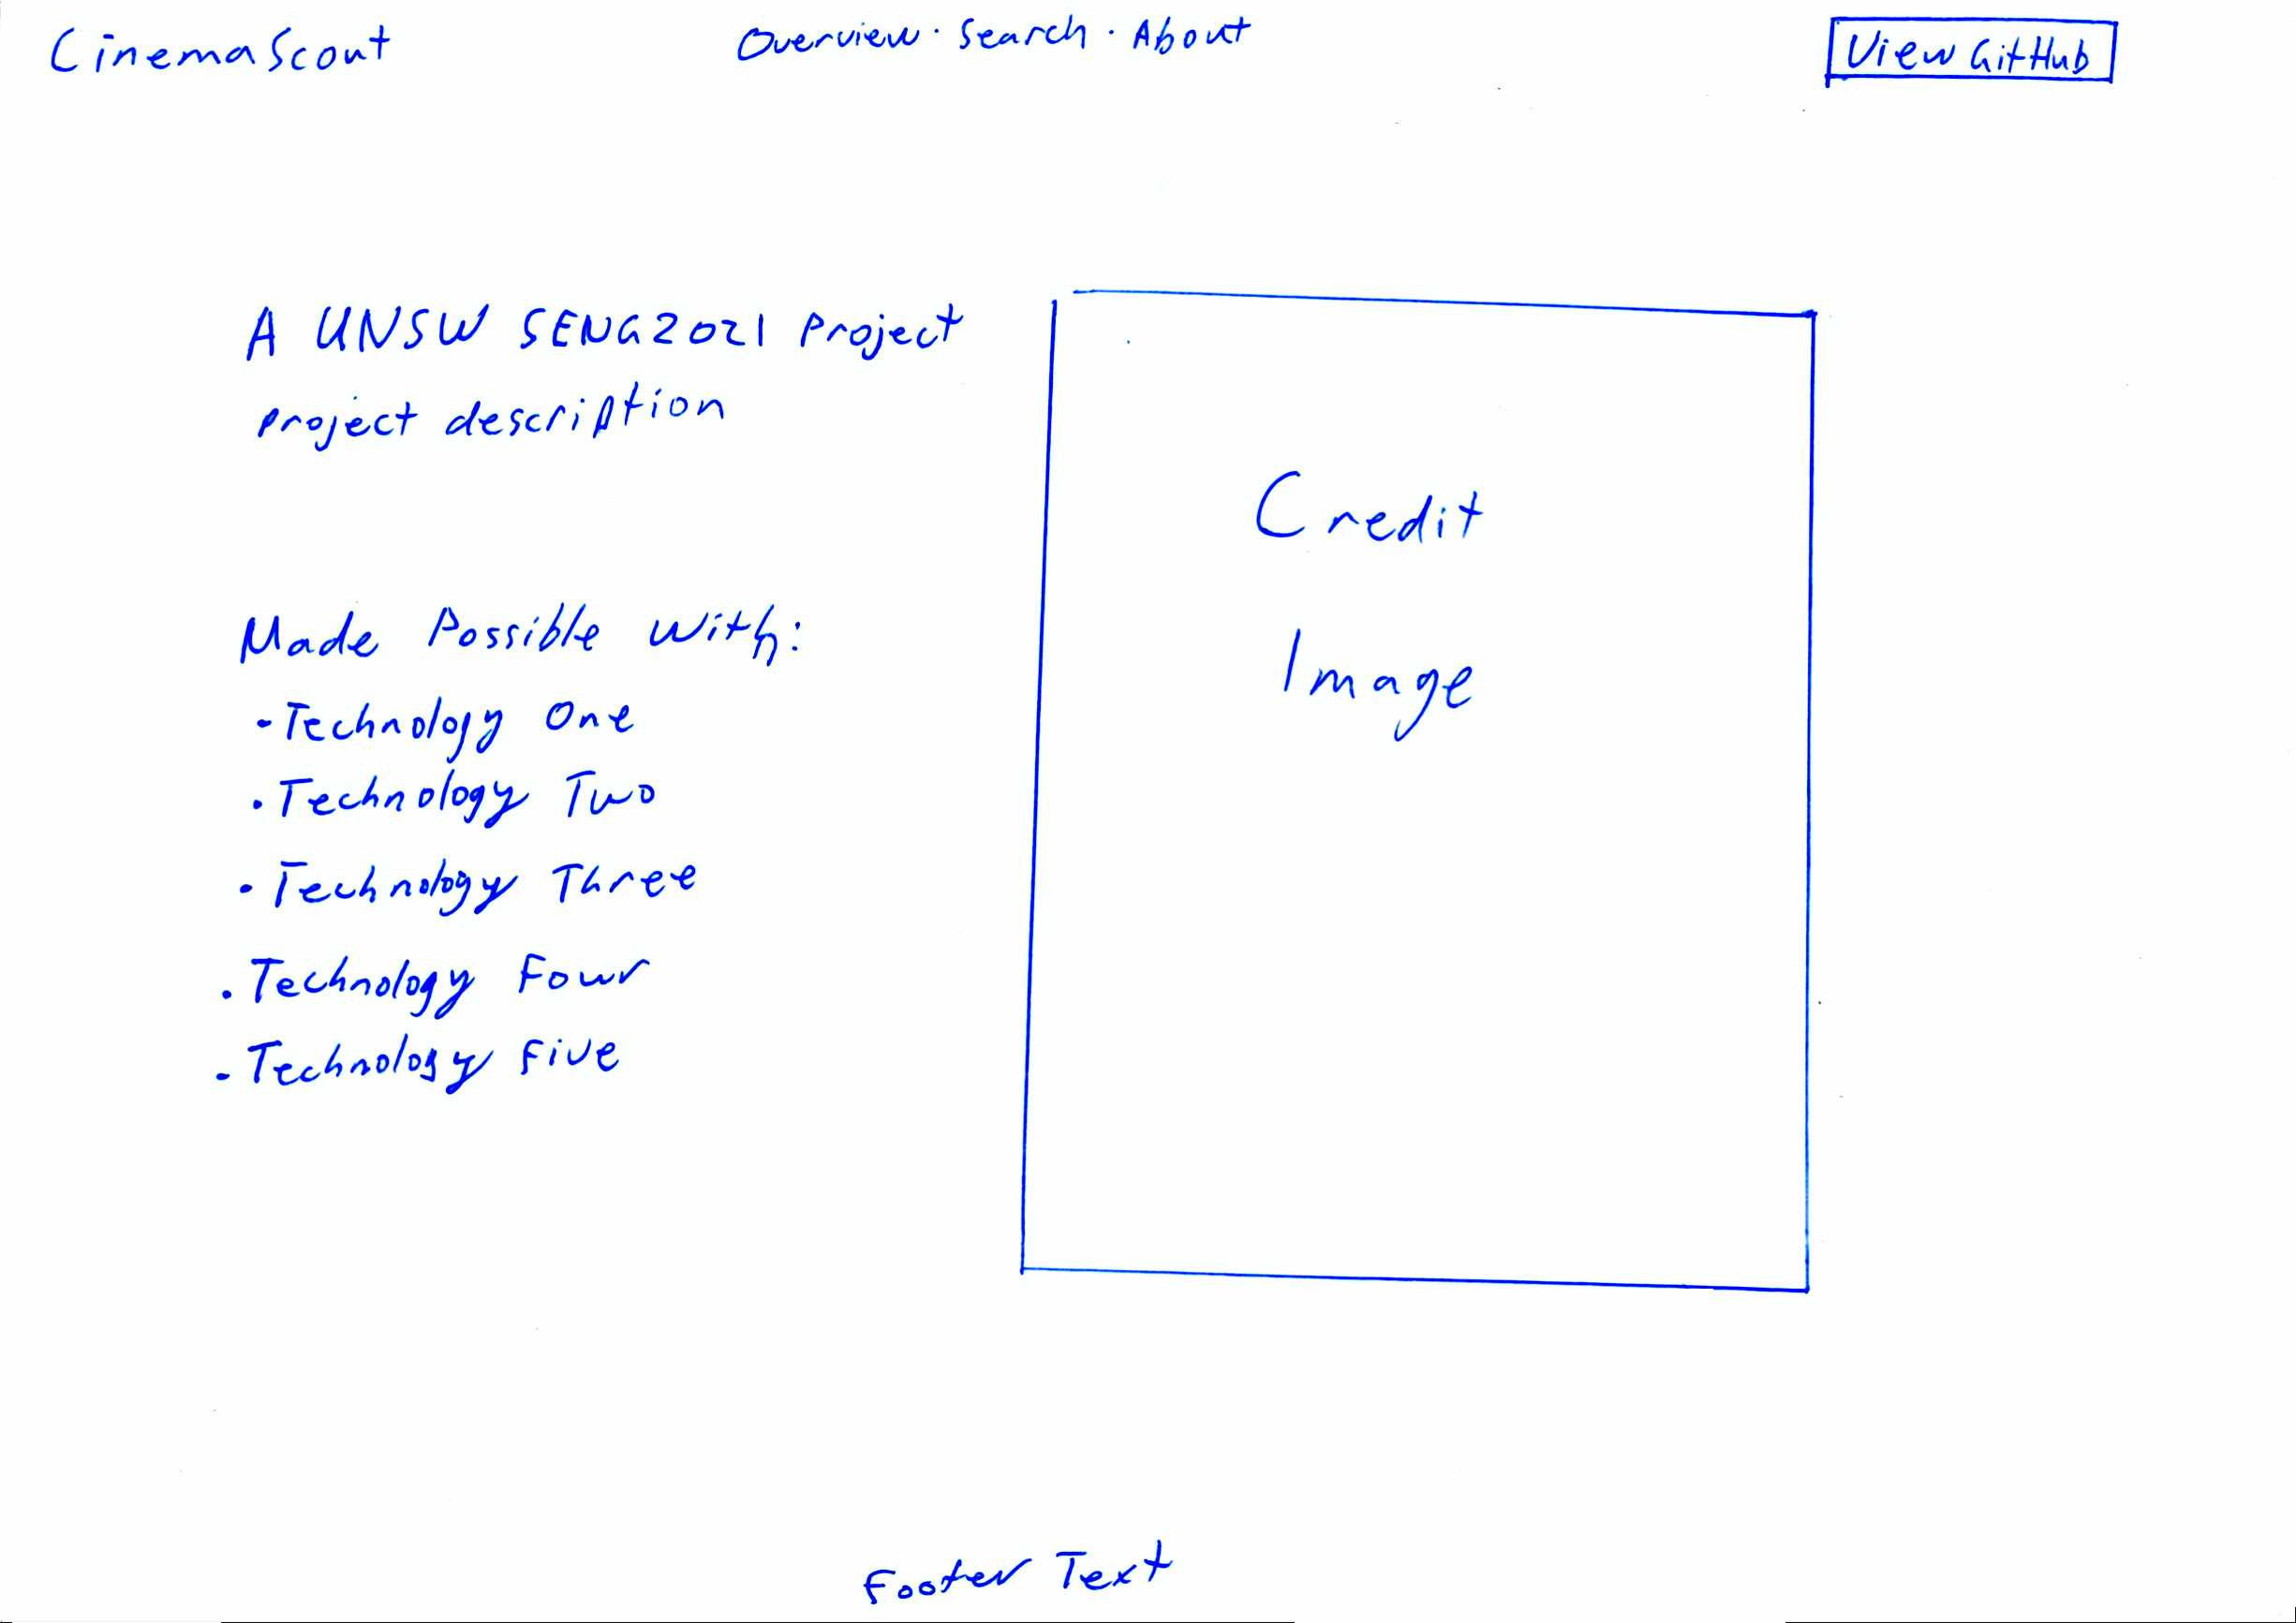 CinemaScout
Overview · Search · About
View GitHub
A UNSW SENG2021 Project
project description
Made Possible With:
- Technology One
· Technology Two
· Technology Three
. Technology Four
- Technology Five
Credit
Image
Footer Text